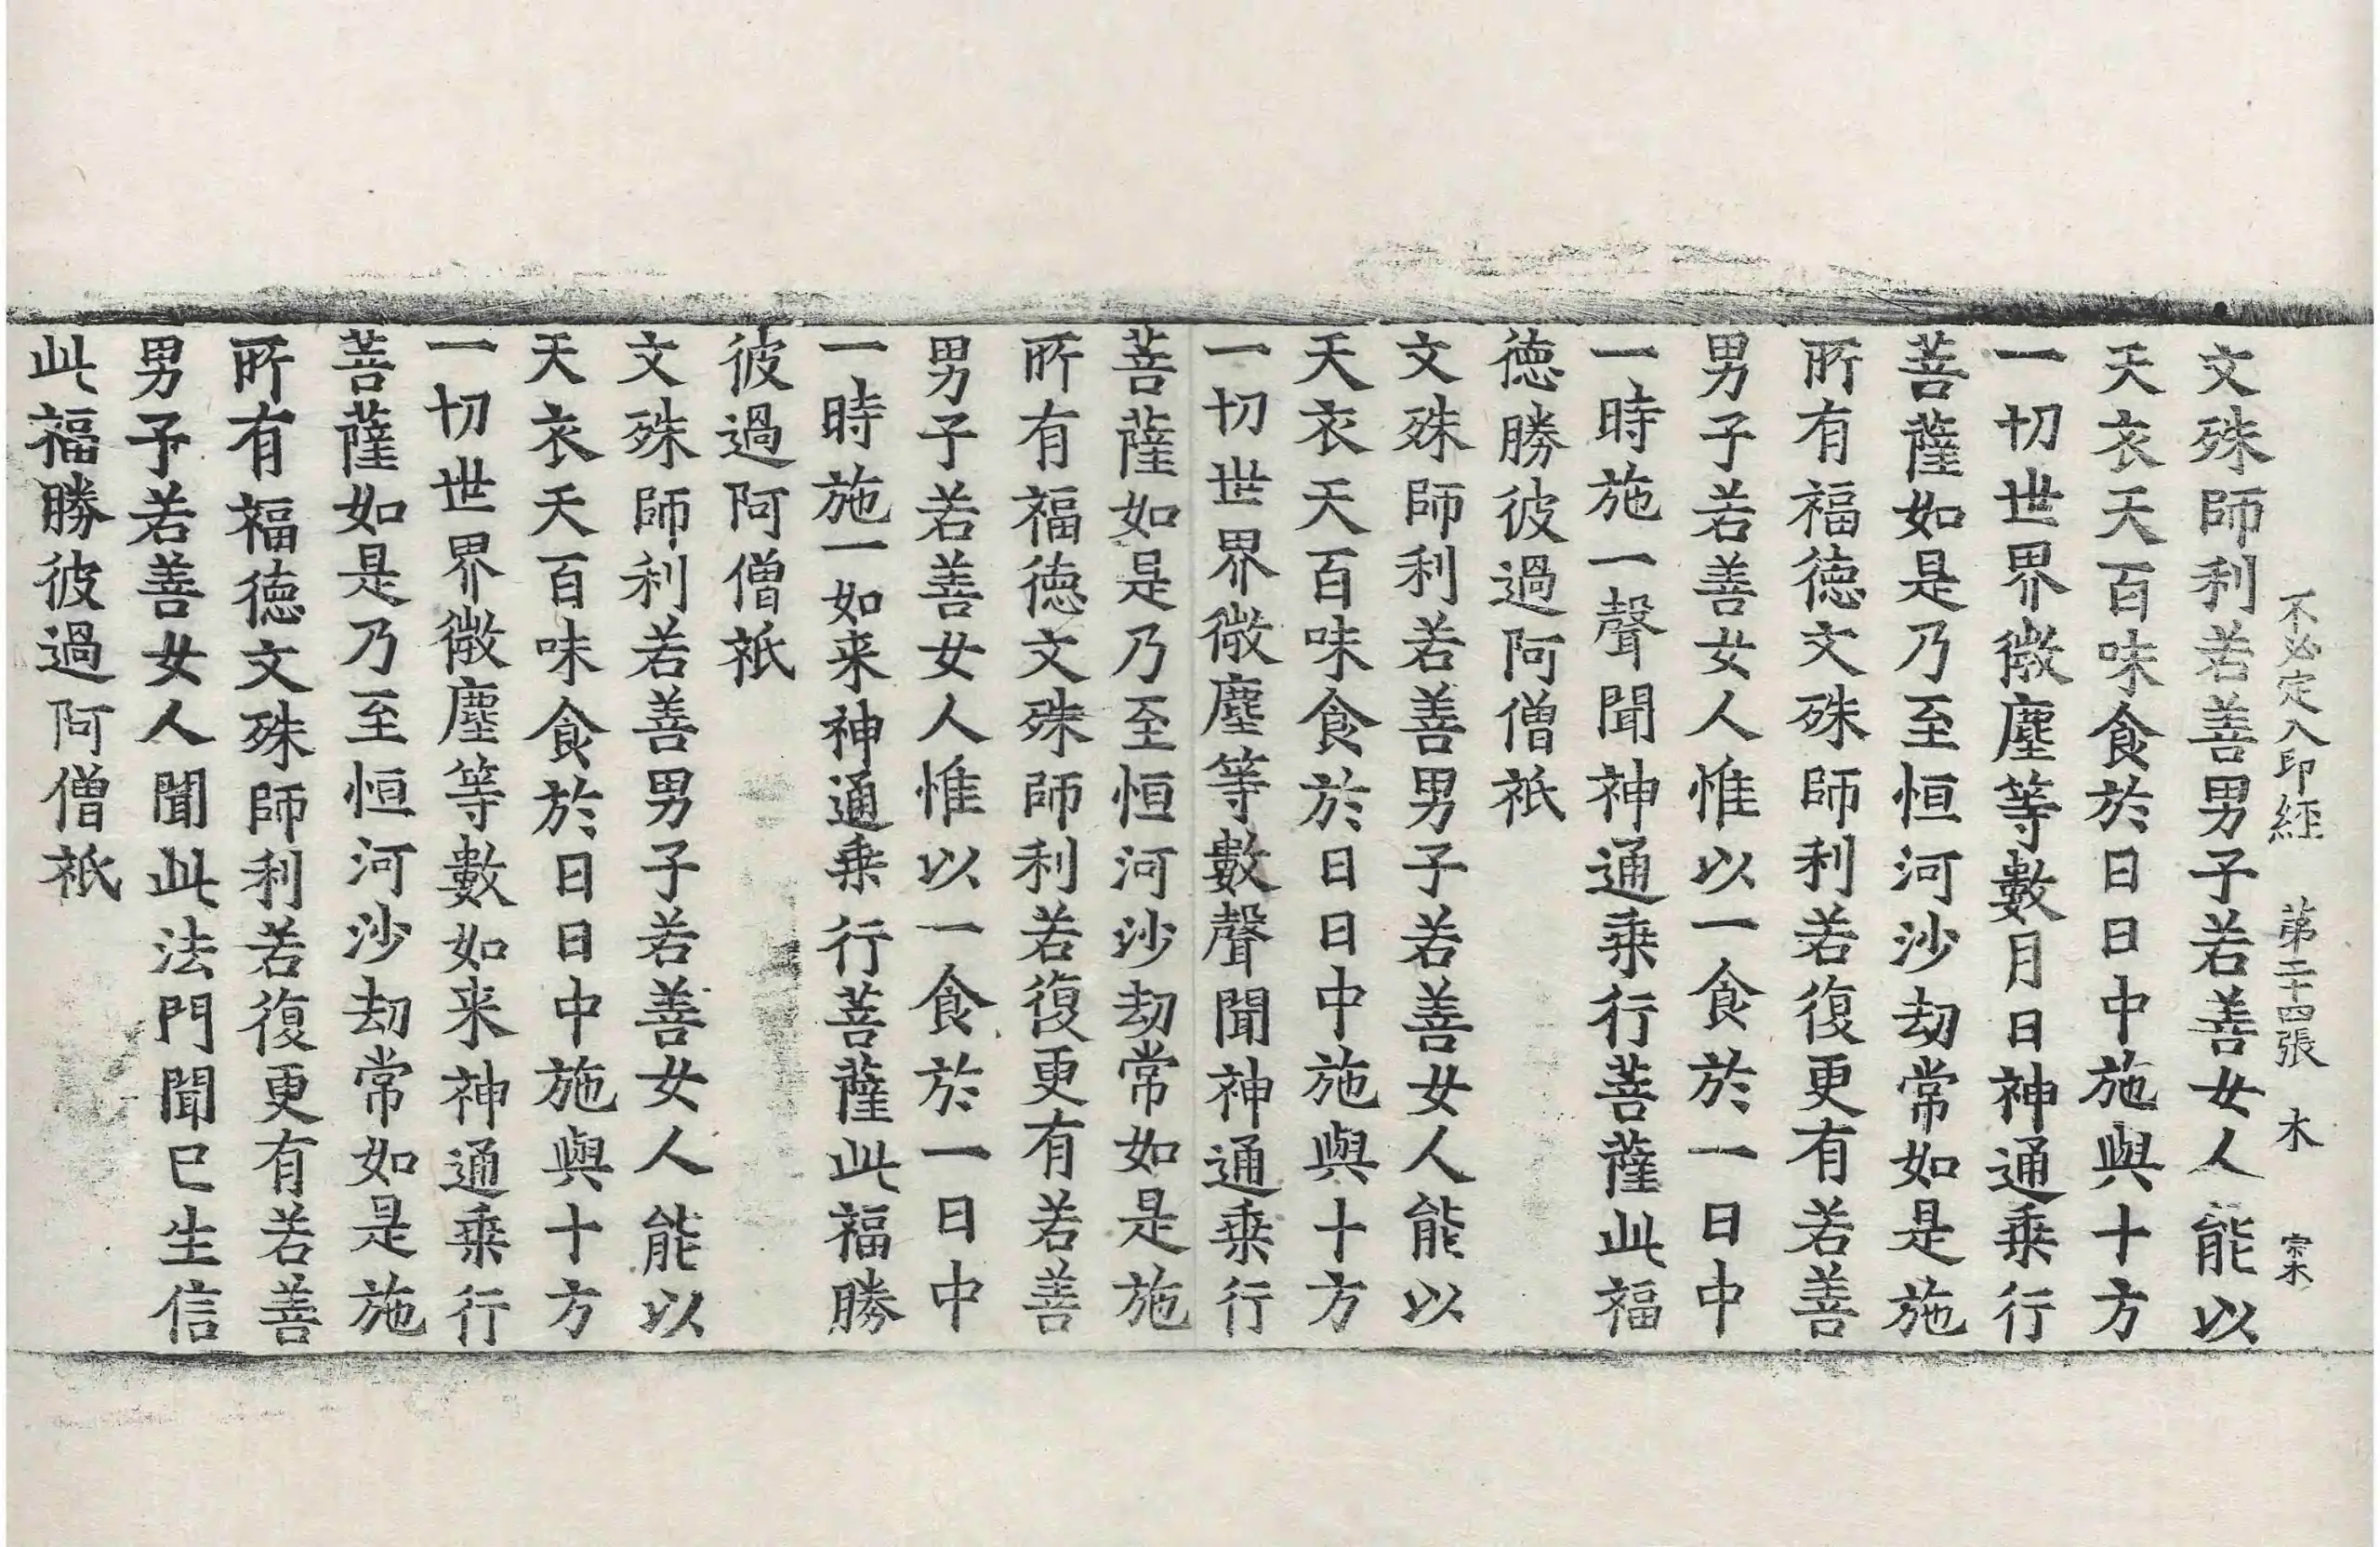 不必定入印經 第二十四張 木 宋木
文殊師利若善男子若善女人能以
天衣天百味食於日日中施與十方
一切世界微塵等數月日神通乗行
菩薩如是乃至恒河沙劫常如是施
所有福徳文殊師利若復更有若善
男子若善女人惟以一食於一日中
一時施一聲聞神通乗行菩薩此福
徳勝彼過阿僧祇
文殊師利若善男子若善女人能以
天衣天百味食於日日中施與十方
一切世界微塵等數聲聞神通乗行
菩薩如是乃至恒河沙劫常如是施
所有福徳文殊師利若復更有若善
男子若善女人惟以一食於一日中
一時施一如来神通乗行菩薩此福勝
彼過阿僧祇
文殊師利若善男子若善女人能以
天衣天百味食於日日中施與十方
一切世界微塵等數如来神通乗行
菩薩如是乃至恒河沙劫常如是施
所有福徳文殊師利若復更有若善
男子若善女人聞此法門聞已生信
此福勝彼過阿僧祇